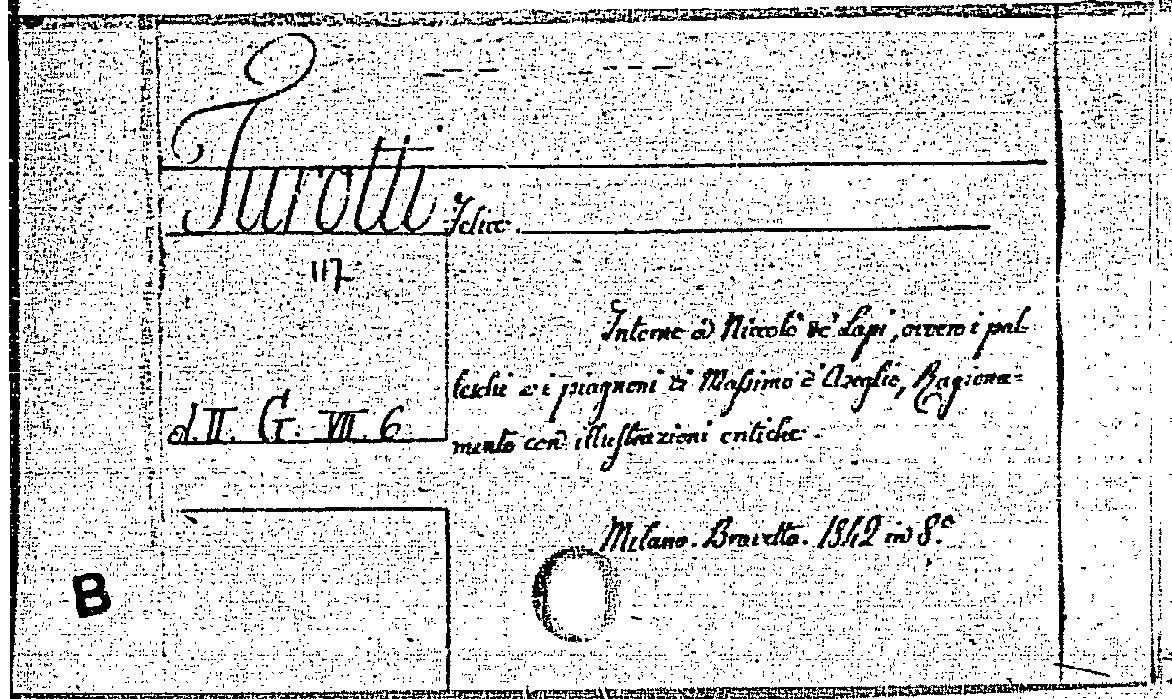 Turotti Felice.
117
Interno à Niccolò de' Lapi, ovvero i pal-
leschi e i piagnoni di Massimo d'Azeglio, Ragiona=
mento con illustrazioni critiche.
d. II. G. VII. 6
Milano. Bravetta. 1842 in 8.º
B